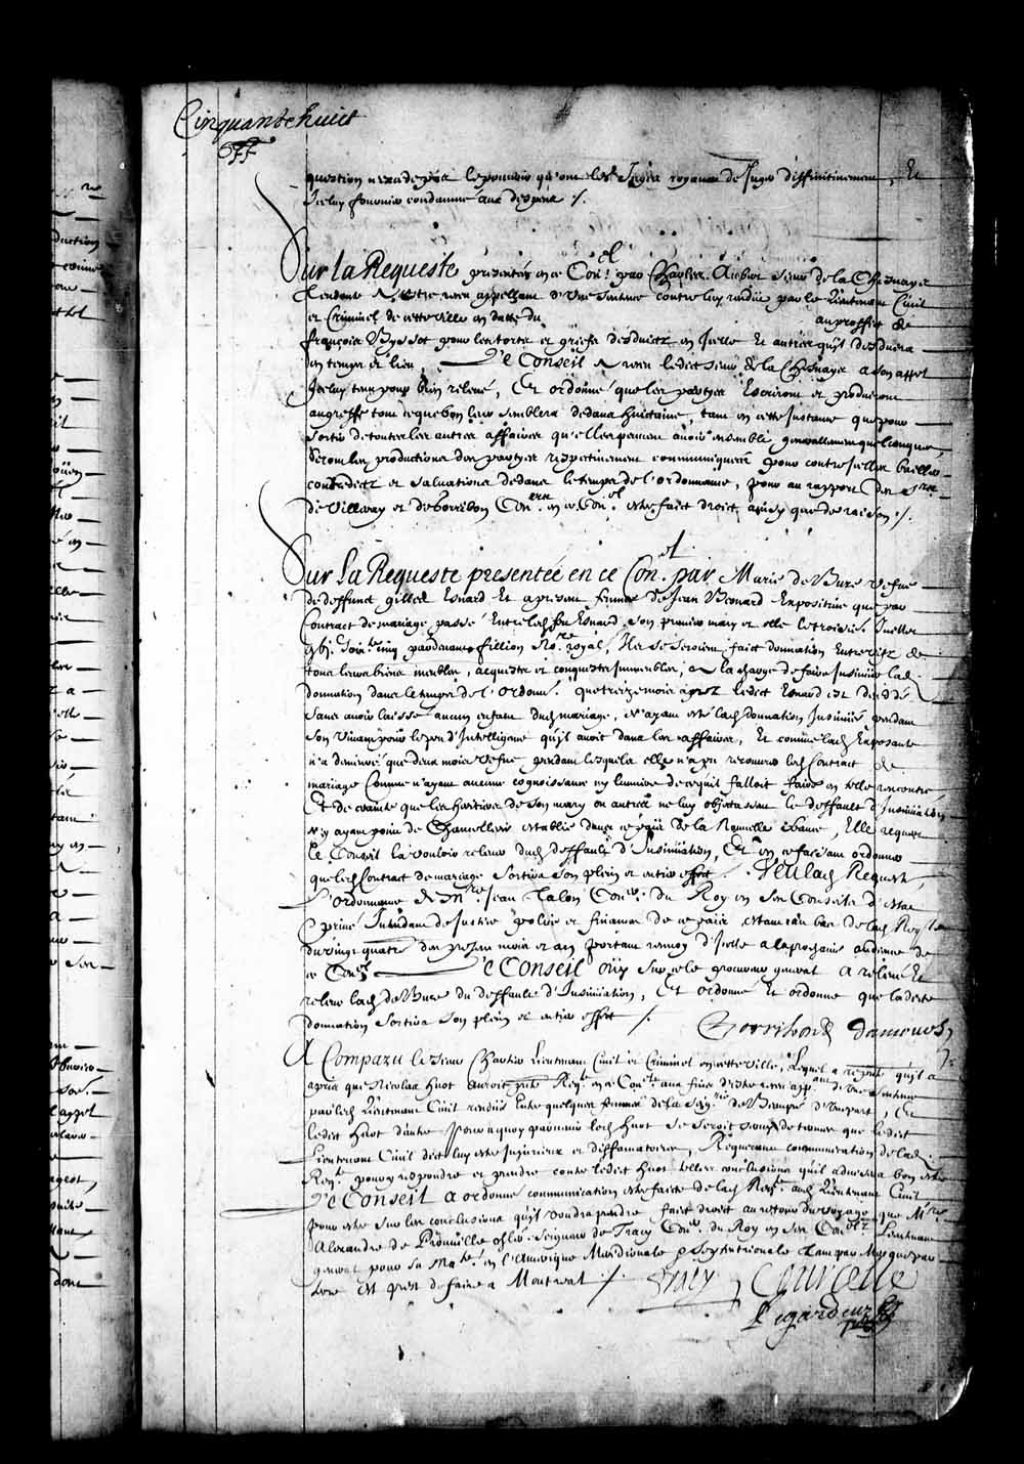 Cinquante huict
question n'excede pas le pouvoir qu'ont les Juges royaux de Juger diffinitivement, Et
Iceluy fournier condamné aux despens /.
Sur la Requeste presentée en ce Con.el par Charles Aubert sieur de la Chesnaye
tendante A estre receu appellant d'une sentence contre luy rendüe par le Lieutenant Civil
et Criminel de cette ville en datte du au proffict de
françois Byssot pour les torts et griefs desduictz en Icelle Et autres qu'il desduira
en temps et lieu, Le Conseil A receu ledict sieur de la Chesnaye a son appel
Iceluy tenu pour bien relevé, Et ordonné que les partyes Escriront et produiront
au greffe tout ce que bon leur semblera dedans huictaine, tant en cette Instance que pour
sortir de toutes les autres affaires qu'elles peuvent avoir ensemble generallement quelconques,
Seront les productions des partyes respectivement communiquées pour contre Icelles bailler
contredictz et salvations dedans le temps de l'ordonnance, pour au rapport des Srs
de Villeray et de Gorribon Con.ers en ce Con.el estre faict droict ainsy que de raison /.
Sur la Requeste presentée en ce Con.el par Marie de Bure vefve
de deffunct gilles Esnard Et a present femme de Jean Besnard Expositive que par
Contract de mariage passé Entre led. feu Esnard son premier mary et elle le troisie. Juillet
gbic. soixte. cinq pardevant fillion No.re royal, Ils se seroient faict donnation Entre eux de
tous leurs biens meubles, acquestz et conquestz immeubles, a la charge de faire Insinüer lad.
donnation dans le temps de l'ordonn.ce que treize mois aprez ledict Esnard est deceddé
sans avoir laissé aucun enfant dud. mariage, N'ayant esté lad. donnation Insinüée pendant
son vivant pour le peu d'Intelligence qu'il avoit dans les affaires, Et comme lad. Exposante
n'a demeuré que deux mois vefve pendant lesquels elle n'a pu recouvrer led. Contract de
mariage Comme n'ayant aucune cognoissance ny lumiere de ce qu'il falloit faire en telle rencontre,
Et de crainte que les heritiers de son mary ou autres ne luy objectassent le deffault d'Insinüation
N'y ayant point de Chancellerie establie dans ce païs de la Nouvelle france, Elle requiert
le Conseil la vouloir relever dud. deffault d'Insinüation, Et en ce faisant ordonner
que led. Contract de mariage Sortira son plein et entier effect. Veu lad. Requeste,
L'ordonnance de M.re Jean Talon Con.er du Roy en ses Conseils d'Estat
et privé Intendant de Justice police et finances de ce païs estant au bas de lad. Req.te
du vingt quatre des presens mois et an portant renvoy d'Icelle a la prochaine audience de
ce Con.el Le Conseil oüy sur ce le procureur general a relevé Et
releve lad. de Bure du deffault d'Insinüation, Et ordonné Et ordonne que ladicte
donnation sortira son plein et entier effect /. Gorribon Damours
A Comparu le sieur Chartier Lieutenant Civil et Criminel en cette ville, Lequel a representé qu'il a
apris que Nicolas Huot auroit presenté Req.te en ce Con.el aux fins d'estre receu app.ant de une sentence
par led. Lieutenant Civil rendüe Entre quelques femmes de la seig.rie de Beaupré d'une part, Et
ledict Huot d'autre Pourquoy parvenir led. Huot se seroit vanté de prouver que ledict
Lieutenant Civil dict luy estre Injurieux et diffamatoires, Requerant communication de lad.
Req.te pour y respondre et prendre contre ledict Huot telles conclusions qu'il advisera bon estre
Le Conseil a ordonné communication estre faicte de lad. Req.te aud. Lieutenant Civil
pour estre sur les conclusions qu'il voudra prendre faict droict au retour du voyage que M.re
Alexandre de Prouville ch.ler Seigneur de Tracy Con.er du Roy en ses Con.lz Lieutenant
general pour sa Ma.té en l'Amerique Meridionale & Septentrionale tant par Mer que par
terre est prest de faire a Montreal /. Tracy Courcelle
Legardeur